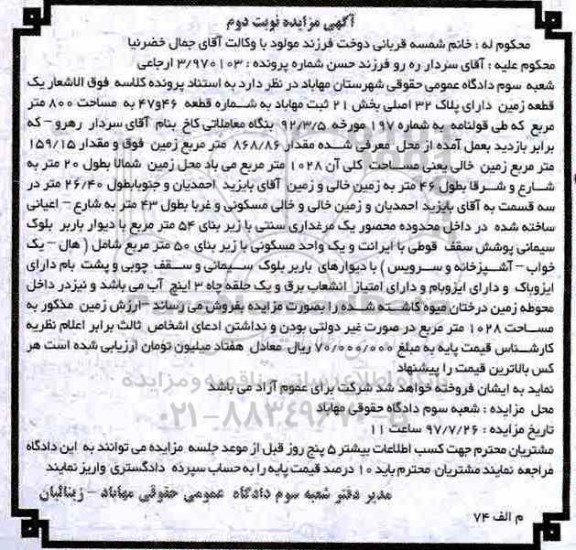 آگهی مزایده نوبت دوم
محکوم له : خانم شمسه قربانی دوخت فرزند مولود با وکالت آقای جمال خضرنیا
محکوم علیه : آقای سردار ره رو فرزند حسن شماره پرونده : ۳/۹۷۰۱۰۳ ارجاعی
شعبه سوم دادگاه عمومی حقوقی شهرستان مهاباد در نظر دارد به استناد پرونده کلاسه فوق الاشعار یک
قطعه زمین دارای پلاک ۳۲ اصلی بخش ۲۱ ثبت مهاباد به شماره قطعه ۴۶و۴۷ به مساحت ۸۰۰ متر
مربع که طی قولنامه به شماره ۱۹۷ مورخه ۹۲/۳/۵ بنگاه معاملاتی کاخ بنام آقای سردار رهرو – که
برابر بازدید بعمل آمده از محل معرفی شده مقدار ۸۶۸/۸۶ متر مربع زمین فوق و مقدار ۱۵۹/۱۵
متر مربع زمین خالی یعنی مساحت کلی آن ۱۰۲۸ متر مربع می باد محل زمین شمالا بطول ۲۰ متر به
شارع و شرقا بطول ۴۶ متر به زمین خالی و زمین آقای بایزید احمدیان و جنوبابطول ۲۶/۴۰ متر در
سه قسمت به آقای بایزید احمدیان و زمین خالی و خالی مسکونی و غربا بطول ۴۳ متر به شارع – اعیانی
ساخته شده در داخل محدوده محصور یک مرغداری سنتی با زیر بنای ۵۴ متر مربع با دیوار باربر بلوک
سیمانی پوشش سقف قوطی با ایرانت و یک واحد مسکونی با زیر بنای ۵۰ متر مربع شامل ( هال – یک
خواب – آشپزخانه و سرویس ) با دیوارهای باربر بلوک سیمانی و سقف چوبی و پشت بام دارای
ایزوباک و دارای ایزوبام و دارای امتیاز انشعاب برق و یک حلقه چاه ۳ اینچ آب می باشد و نیزدر داخل
محوطه زمین درختان میوه کاشته شده را بصورت مزایده بفروش می رساند –ارزش زمین مذکور به
مساحت ۱۰۲۸ متر مربع در صورت غیر دولتی بودن و نداشتن ادعای اشخاص ثالث برابر اعلام نظریه
کارشناس قیمت پایه به مبلغ ۷۰/۰۰۰/۰۰۰ ریال معادل هفتاد میلیون تومان ارزیابی شده است هر
کس بالاترین قیمت را پیشنهاد
نماید به ایشان فروخته خواهد شد شرکت برای عموم آزاد می باشد
محل مزایده : شعبه سوم دادگاه حقوقی مهاباد
تاریخ مزایده : ۹۷/۷/۲۶ ساعت ۱۱
مشتریان محترم جهت کسب اطلاعات بیشتر ۵ پنج روز قبل از موعد جلسه مزایده می توانند به این دادگاه
مراجعه نمایند مشتریان محترم باید ۱۰ درصد قیمت پایه را به حساب سپرده دادگستری واریز نمایند
مدیر دفتر شعبه سوم دادگاه عمومی حقوقی مهاباد – زینالیان
م الف ۷۴
۰۲۱-۸۸۳۴۹۶۷۰-۵